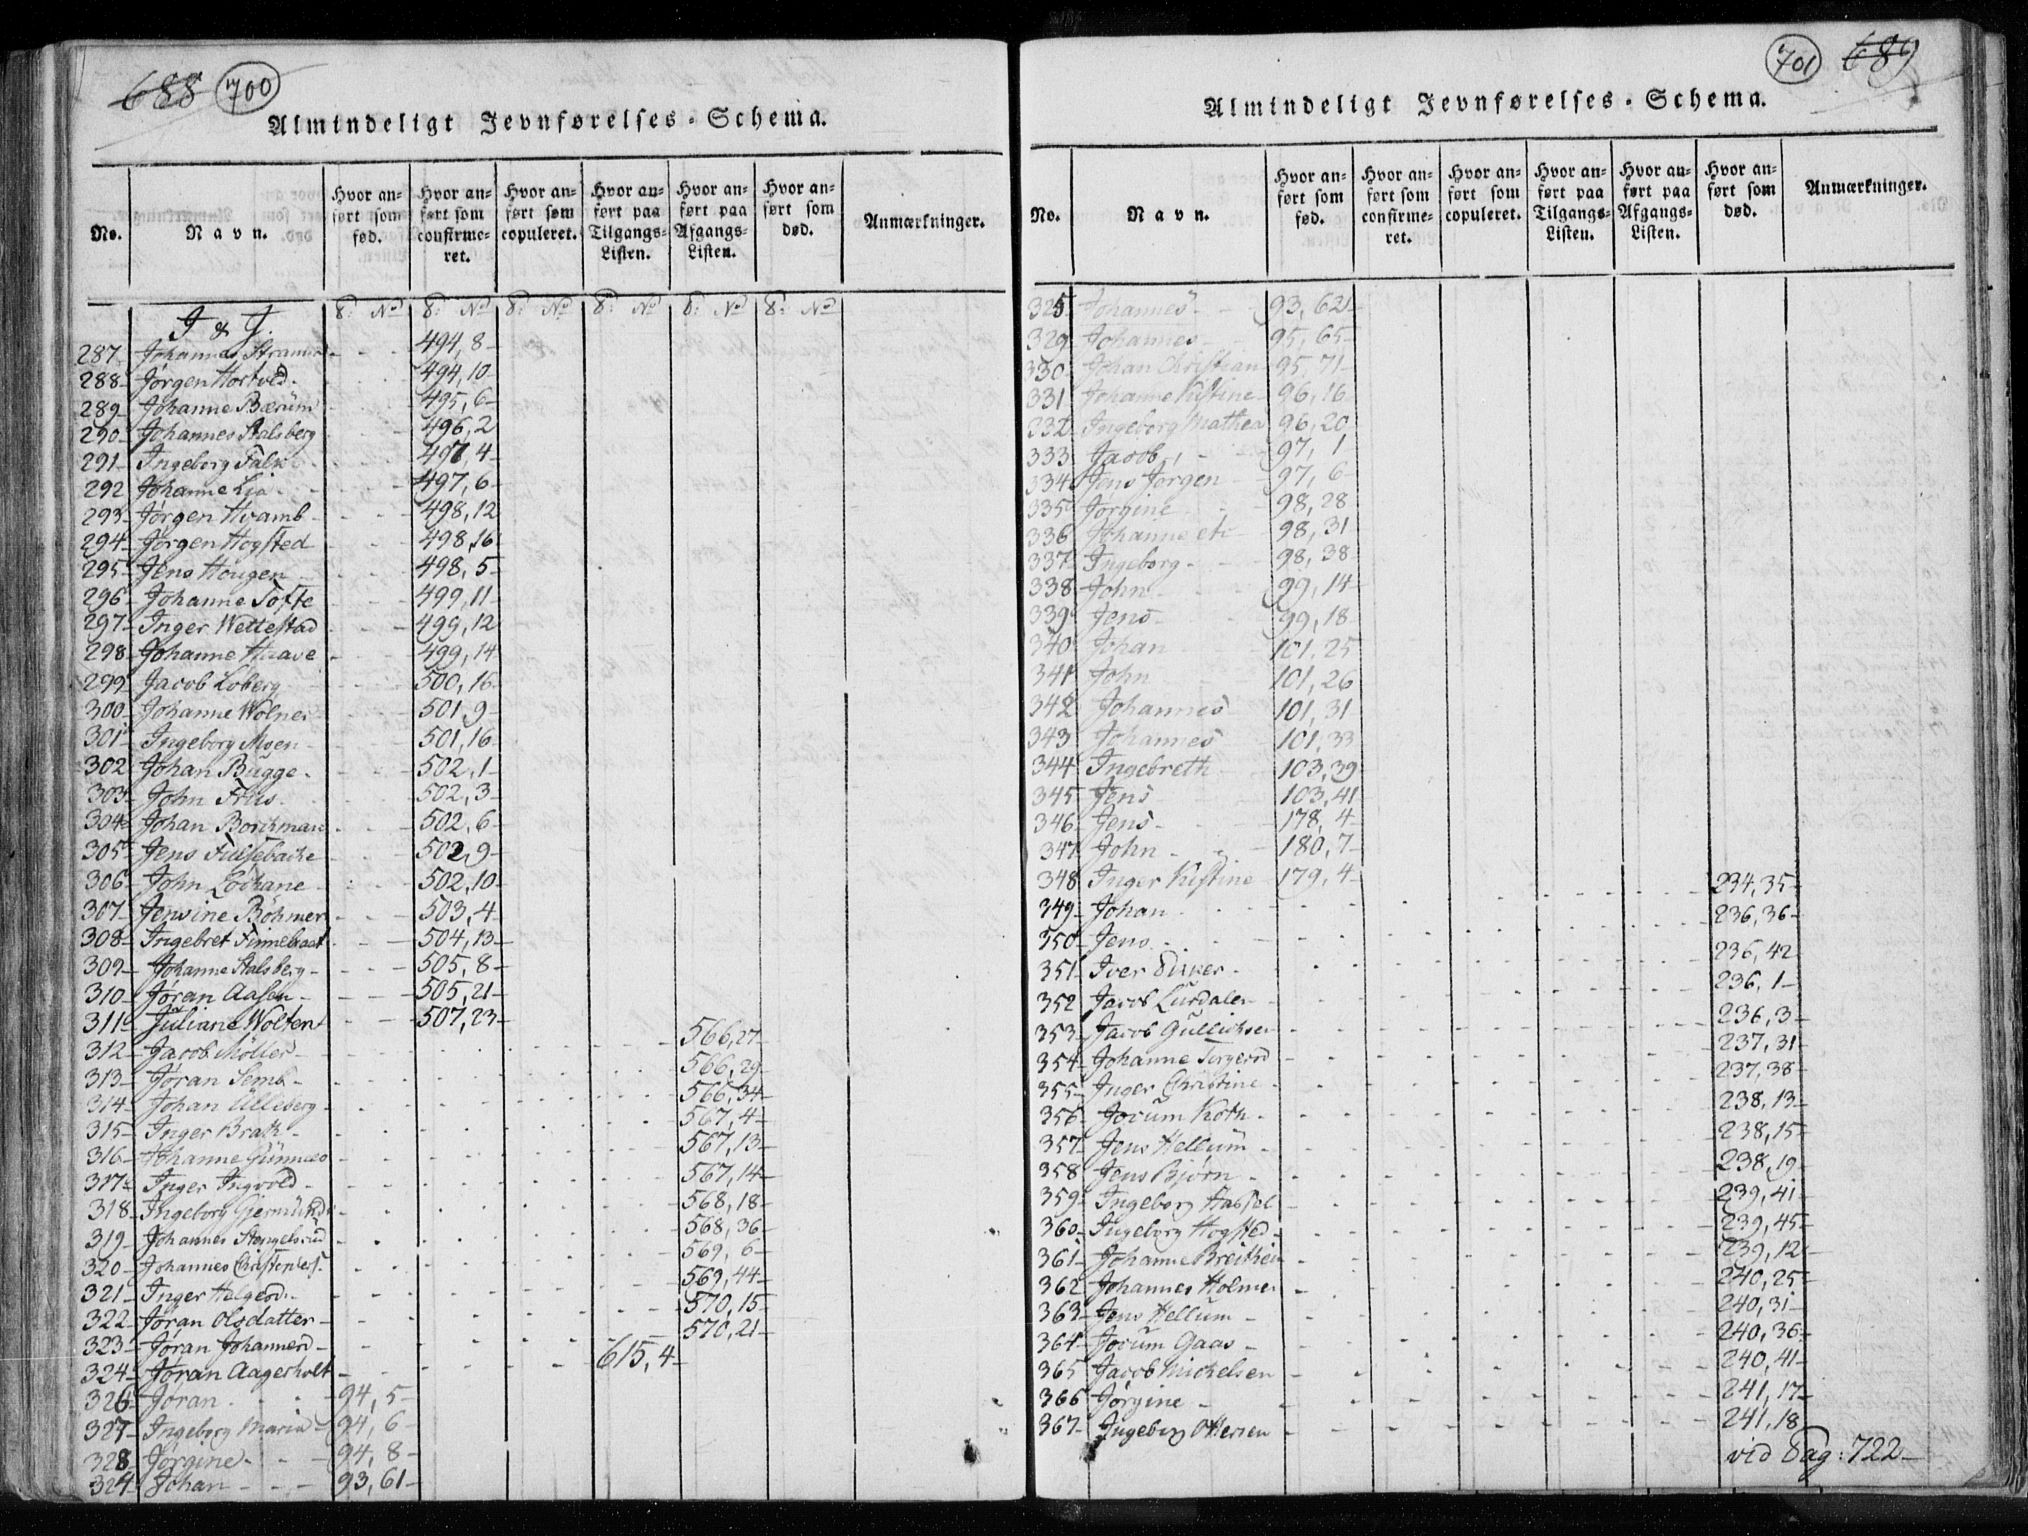 688 700
Almindeligt Jevnførelses-Schema.
No. Navn. Hvor anført som fød. Hvor anført som confirmeret. Hvor anført som copuleret. Hvor anført paa Tilgangs-Listen. Hvor anført paa Afgangs-Listen. Hvor anført som død. Anmærkninger.
I & J.
287 Johannes 494, 8
288 Jørgen Hortved 494, 10
289 Johanne Bærüm 495, 6
290 Johannes Stalsberg 496, 2
291 Ingeborg Falk 497, 4
292 Johanne Lia 497, 6
293 Jørgen Hvamb 498, 12
294 Jørgen Hogsted 498, 16
295 Jens Hougen 498, 5
296 Johanne Tofte 499, 11
297 Inger Wettestad 499, 12
298 Johanne Haave 499, 14
299 Jacob Loberg 500, 16
300 Johanne Wolner 501, 9
301 Ingeborg Moen 501, 16
302 Johan Bugge 502, 1
303 John Friis 502, 3
304 Johan Borchman 502, 6
305 Jens 502, 9
306 John 502, 10
307 Jensine Böhmer 503, 4
308 Ingebret 504, 13
309 Johanne Stalsberg 505, 8
310 Jøran Aasen 505, 21
311 Juliane Wolten 507, 23
312 Jacob Möller 566, 27
313 Jøran Semb 566, 29
314 Johan Ülleberg 566, 34
315 Inger Brath 567, 4
316 Johanne 567, 13
317 Inger Ingvold 567, 14
318 Ingeborg 568, 18
319 Johannes Stengelsrüd 568, 36
320 Johannes 569, 6
321 Inger 569, 44
322 Jøran Olsdatter 570, 15
323 Jøran 570, 21
324 Jøran Aagerholt 615, 4
326 Jøran 94, 5
327 Ingeborg Maria 94, 6
328 Jørgine 94, 8
324 Johan 93, 61
701 689
Almindeligt Jevnførelses-Schema.
No. Navn. Hvor anført som fød. Hvor anført som confirmeret. Hvor anført som copuleret. Hvor anført paa Tilgangs-Listen. Hvor anført paa Afgangs-Listen. Hvor anført som død. Anmærkninger.
325 Johannes 93, 62
329 Johannes 95, 65
330 Johan Christian 95, 71
331 Johanne Kistine 96, 16
332 Ingeborg Mathea 96, 20
333 Jacob 97, 1
334 Jens Jørgen 97, 6
335 Jørgine 98, 28
336 Johanne 98, 31
337 Ingeborg 98, 38
338 John 99, 14
339 Jens 99, 18
340 Johan 101, 25
341 John 101, 26
342 Johannes 101, 31
343 Johannes 101, 33
344 Ingebreth 103, 39
345 Jens 103, 41
346 Jens 178, 4
347 John 180, 7
348 Inger Kistine 179, 4
349 Johan 234, 35
350 Jens 236, 36
351 Iver 236, 42
352 Jacob Lürdalen 236, 1
353 Jacob Gullichsen 236, 3
354 Johanne 237, 31
355 Inger Christine 237, 38
356 Jorum Koth 238, 13
357 Jens Hellüm 238, 15
358 Jens Bjørn 238, 19
359 Ingeborg Hassel 239, 41
360 Ingeborg Hogsted 239, 45
361 Johanne 239, 12
362 Johannes Holmen 240, 25
363 Jens Hellum 240, 31
364 Jorum Gaas 240, 36
365 Jacob Michelsen 240, 41
366 Jørgine 241, 17
367 Ingeborg 241, 18
vid Pag: 722